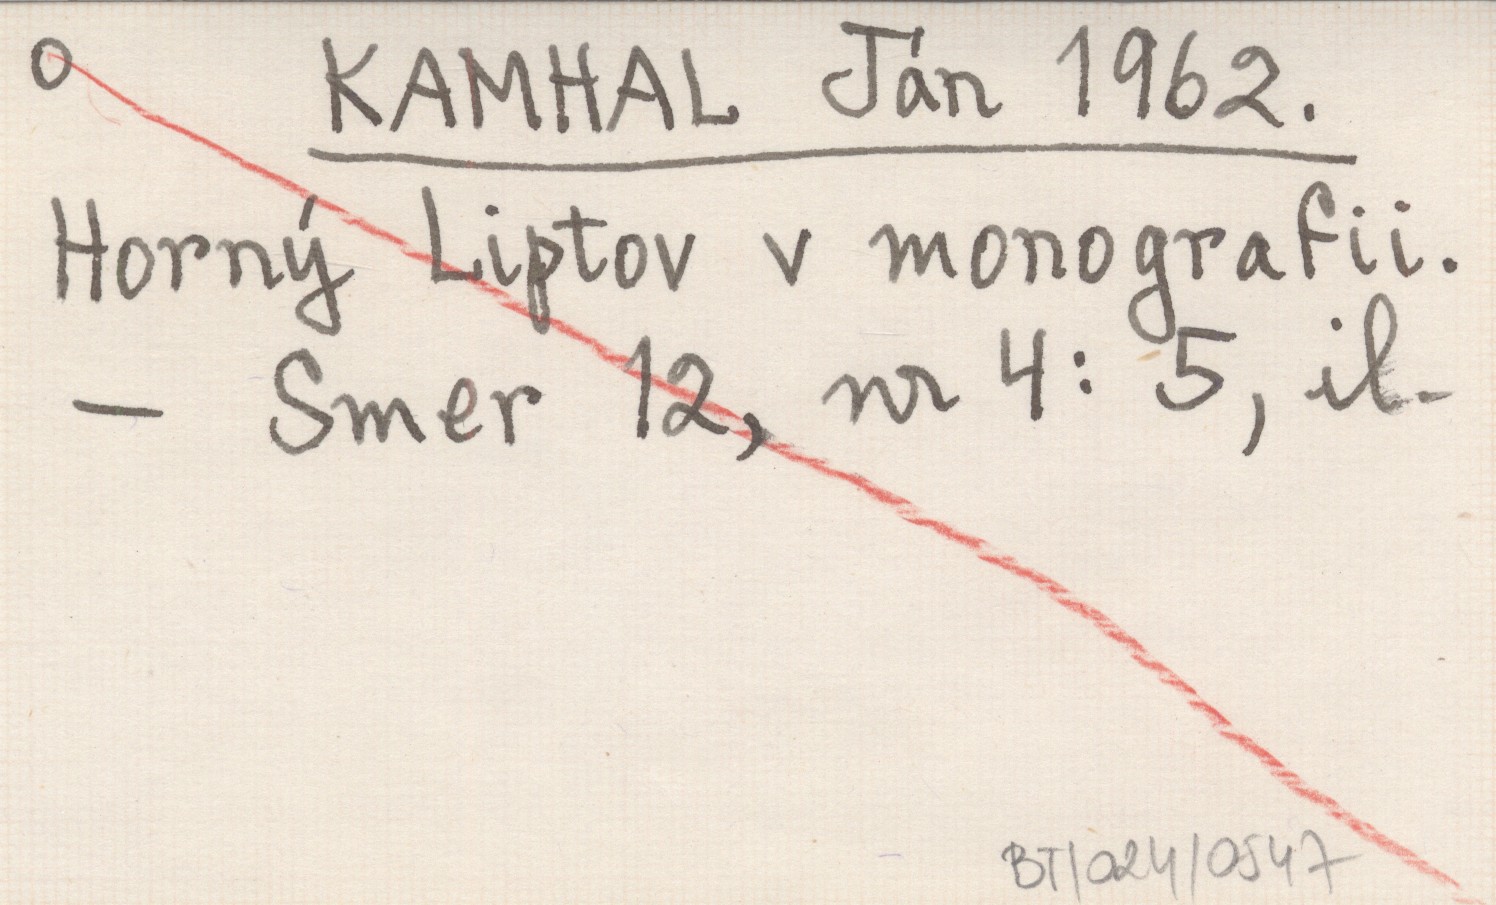 o KAMHAL Ján 1962.
Horný Liptov v monografii.
— Smer 12, nr 4: 5, il.
BT/024/0547